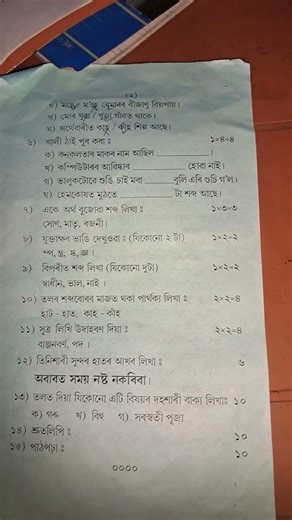 (২)
খ) মহে / ম'হে খেলাৰৰ বীজাণু বিয়পায়।
গ) মোৰ খুৰা / খুড়া গাঁৱত থাকে।
ঘ) সৰ্থেবাৰীত কহ / কাঁহ শিল্প আছে।
৬) খালী ঠাই পূৰ কৰা ঃ ১×৪=৪
ক) কনকলতাৰ মাকৰ নাম আছিল ।
খ) কম্পিউটাৰৰ আৱিষ্কাৰ হোৱা নাই।
গ) ভালুকটোৱে শুঙি চাই মৰা বুলি এৰি গুচি গ'ল।
ঘ) হেমকোষত মুঠতে টা শব্দ আছে।
৭) একে অৰ্থ বুজোৱা শব্দ লিখা ঃ ১×৩=৩
সোণ, মাতৃ, ৰজনী।
৮) যুক্তাক্ষৰ ভাঙি দেখুওৱা ঃ (যিকোনো ২ টা) ১×২=২
৯) বিপৰীত শব্দ লিখা (যিকোনো দুটা) ১×২=২
স্বাধীন, ভাল, নাই ।
১০) তলৰ শব্দবোৰৰ মাজত থকা পাৰ্থক্য লিখা ঃ ২×২=৪
হাট - হাত; কাহ - কাঁহ
১১) সূত্ৰ লিখি উদাহৰণ দিয়া ঃ ২×২=৪
ব্যঞ্জনবৰ্ণ, পদ ।
১২) তিনিশাৰী সুন্দৰ হাতৰ আখৰ লিখা ঃ ৬
অবাবত সময় নষ্ট নকৰিবা।
১৩) তলত দিয়া যিকোনো এটি বিষয়ৰ দহশাৰী বাক্য লিখাঃ ১০
ক) গৰু খ) বিহু গ) সৰস্বতী পূজা
১৪) শ্ৰুতলিপি ঃ ১০
১৫) পাঠপঢ়া ঃ ১০
০০০০